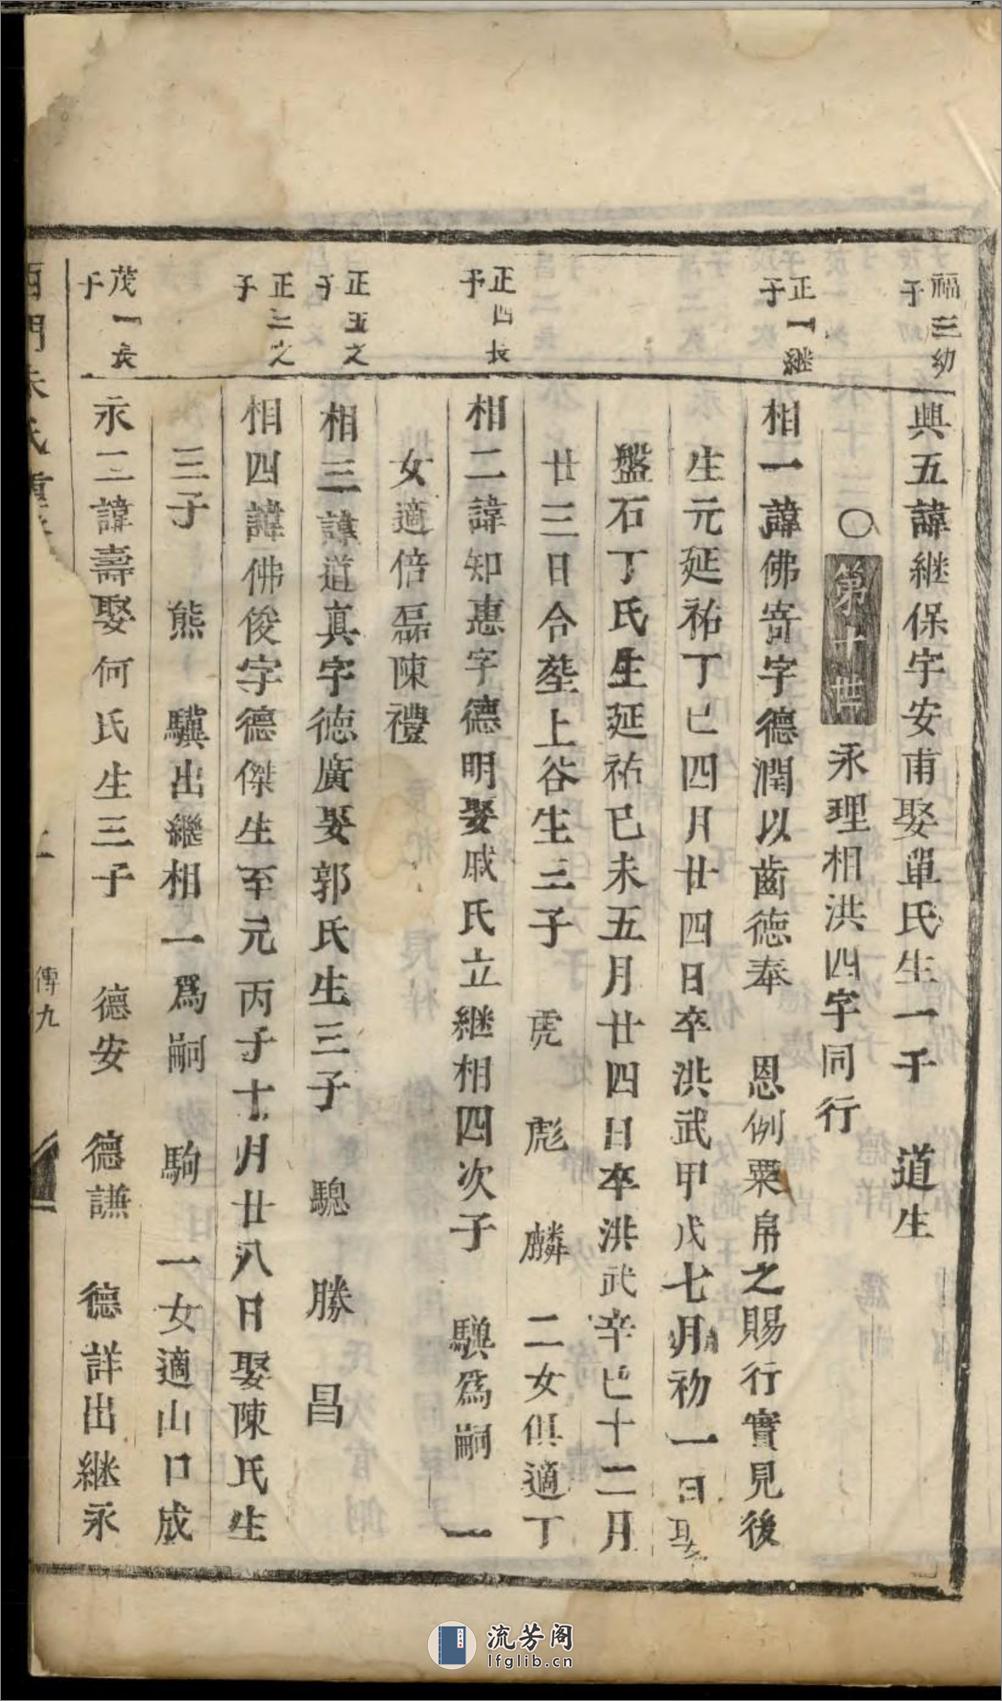 福三幼子
興五諱継保字安甫娶單氏生一子　道生
○第十世　永理相洪四字同行
正一継子
相一諱佛寄字德潤以齒德奉　恩例粟帛之賜行實見後
生元延祐丁巳四月廿四日卒洪武甲戌七月初一日娶
盤石丁氏生延祐己未五月廿四日卒洪武辛巳十二月
廿三日合塟上谷生三子　虎　彪　麟　二女俱適丁
正四長子
相二諱知惠字德明娶戚氏立継相四次子　驥爲嗣　一
女適倍磊陳禮
正五次子
相三諱道真字德廣娶郭氏生三子　驄　勝　昌
正三次子
相四諱佛俊字德傑生至元丙子十月廿八日娶陳氏生
三子　熊　驥出繼相一爲嗣　駒　一女適山口成
茂一長子
永二諱壽娶何氏生三子　德安　德謙　德詳出継永
傳九
流芳阁
lfglib.cn